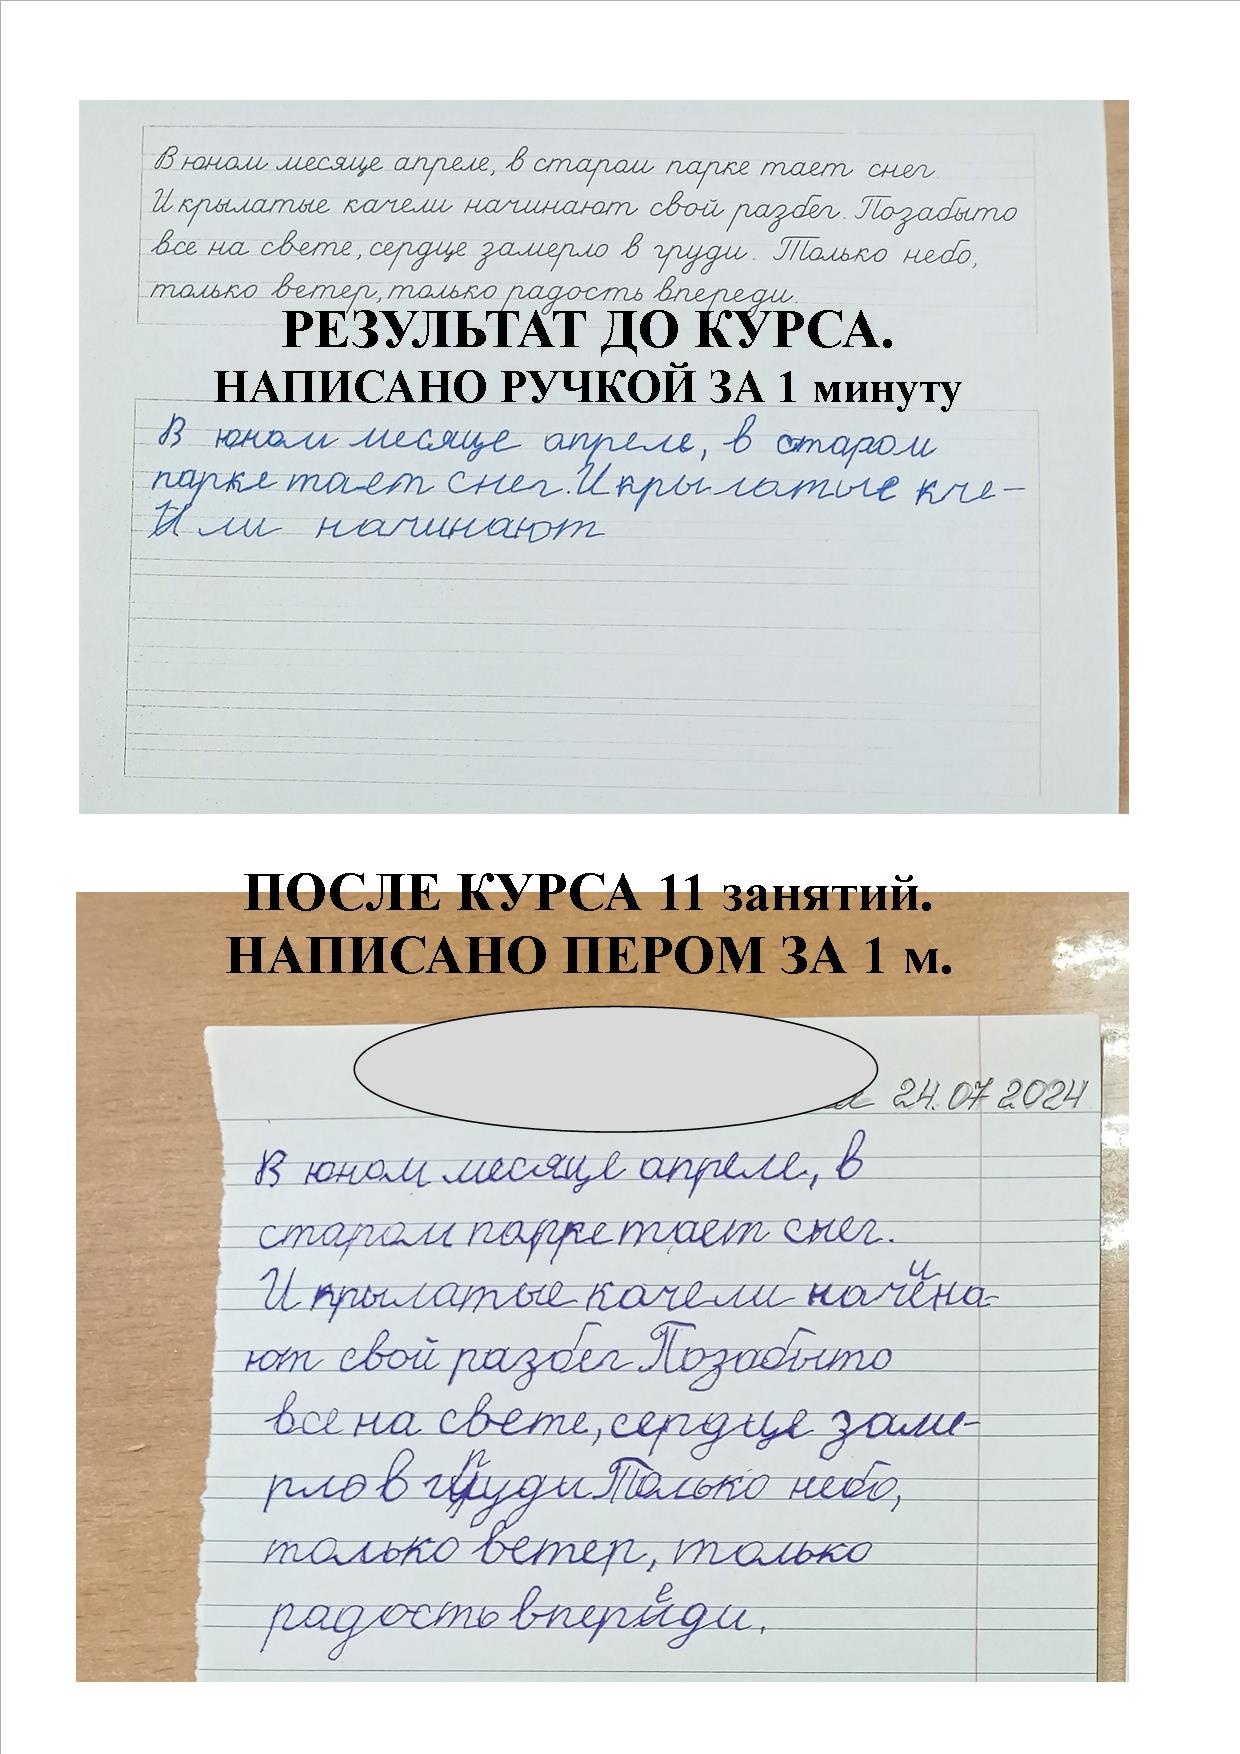 В юном месяце апреле, в старом парке тает снег.
И крылатые качели начинают свой разбег. Позабыто
все на свете, сердце замерло в груди. Только небо,
только ветер, только радость впереди.
РЕЗУЛЬТАТ ДО КУРСА.
НАПИСАНО РУЧКОЙ ЗА 1 минуту
В юном месяце апреле, в старом
парке тает снег. И крылатые кче-
ли начинают
ПОСЛЕ КУРСА 11 занятий.
НАПИСАНО ПЕРОМ ЗА 1 м.
24.07 2024
В юном месяце апреле, в
старом парке тает снег.
И крылатые качели начина-
ют свой разбег Позабыто
все на свете, сердце заме-
рло в груди Только небо,
только ветер, только
радость впереди.